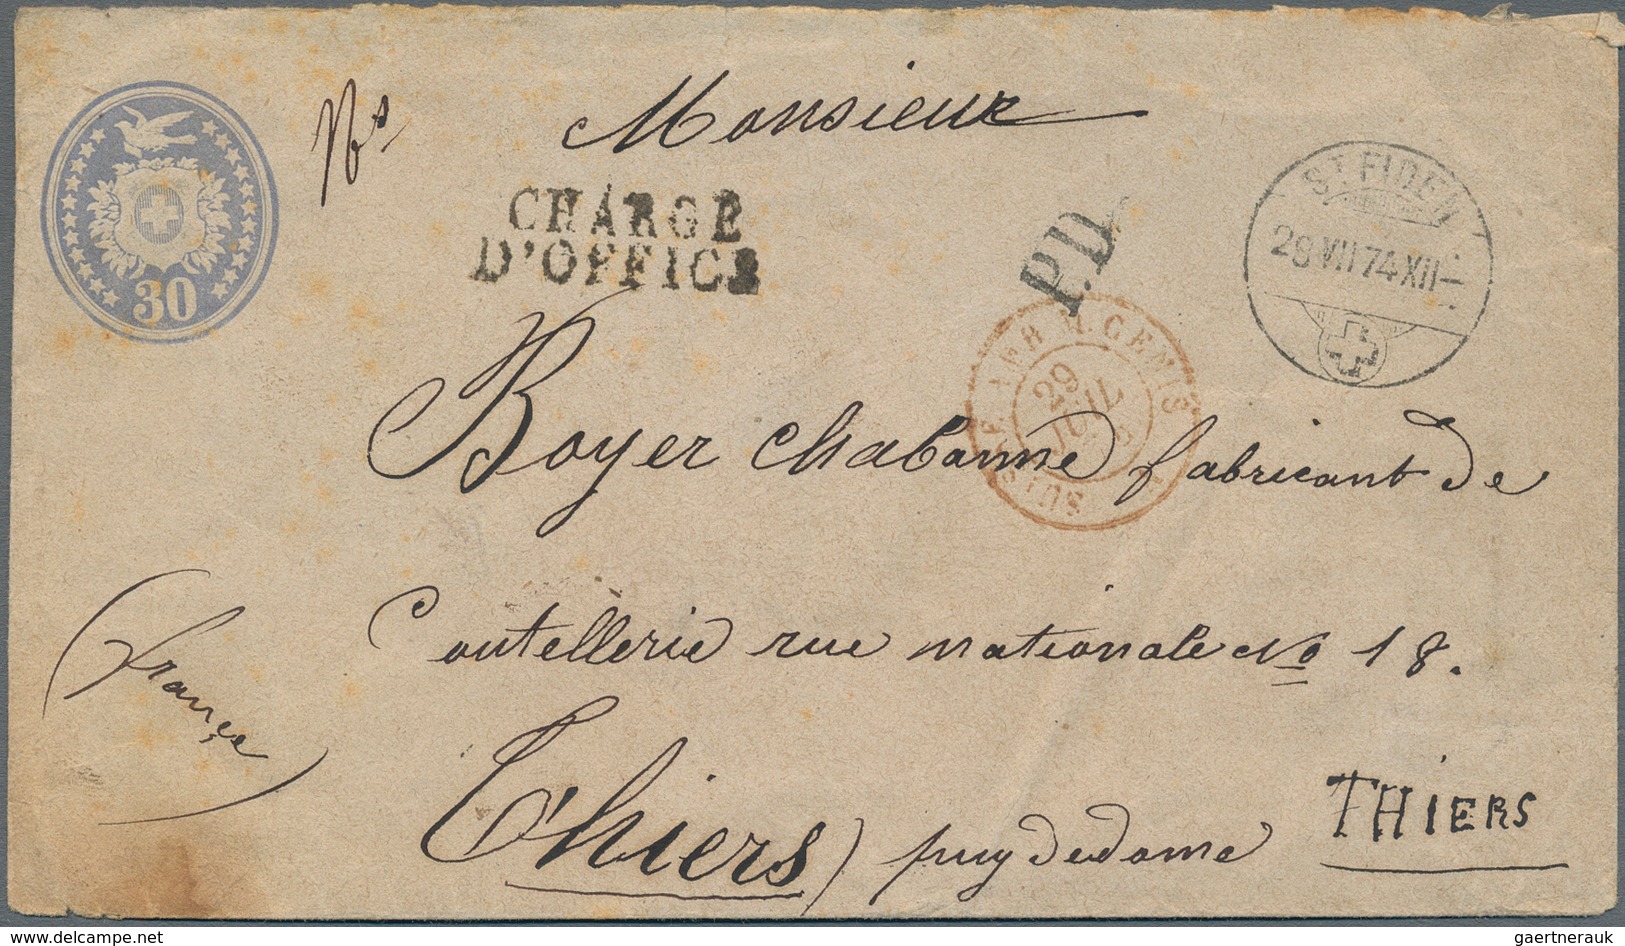 Monsieur
CHARGE
D'OFFICE
P.D.
ST. FIDEN
28 VII 74 XII
30
29
JUIL
SUISSE
Boyer chabanne fabricant de
Coutellerie rue nationale No 18.
(françe)
Thiers) puy de dome
THIERS
delcampe.net
gaertnerauk